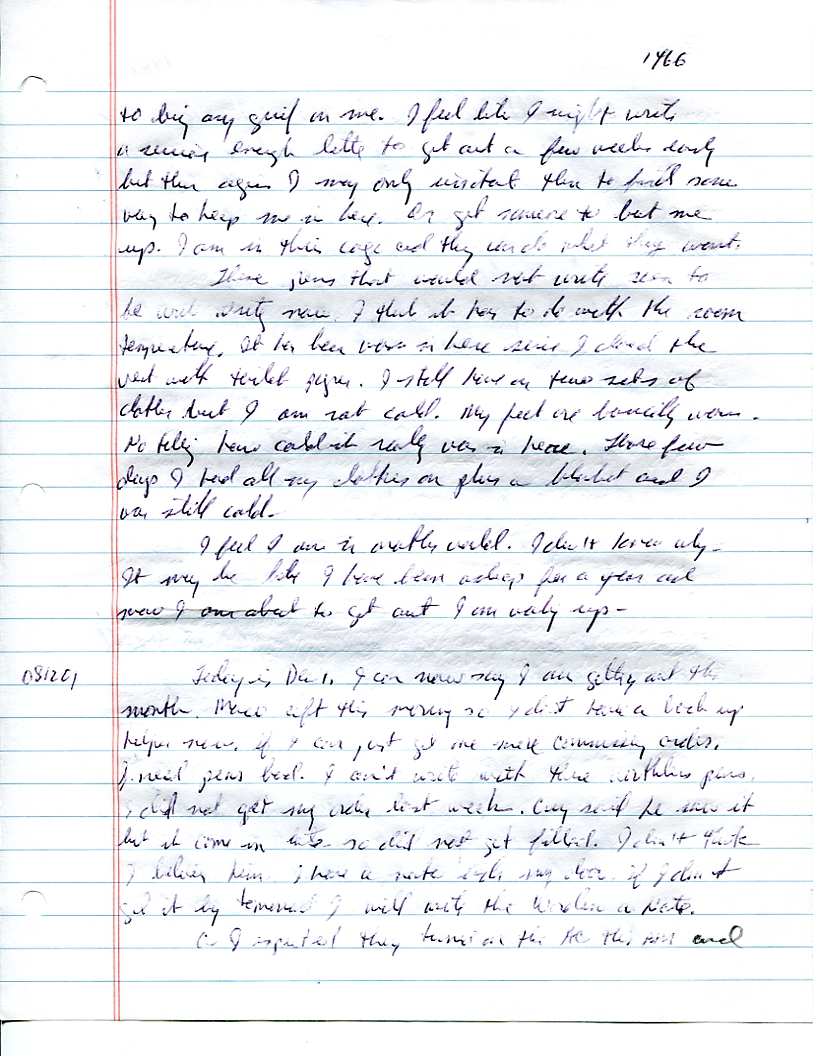 1466
to bring any grief on me. I feel like I might write
a serious enough letter to get out a few weeks early
but then again I may only irritate them to find some
way to keep me in here. Or get someone to beat me
up. I am in this cage and they can do what they want.
These pens that would not write seem to
be writing now. I think it has to do with the room
temperature. It has been warm in here since I closed the
vent with toilet paper. I still have on two sets of
clothes but I am not cold. My feet are basically warm.
No telling how cold it really was in here. Those few
days I had all my clothes on plus a blanket and I
was still cold.
I feel I am in another world. I don't know why.
It may be like I have been asleep for a year and
now I am about to get out I am waking up -
081201
Today is Dec 1. I can now say I am getting out this
month. left this morning so I don't have a back up
helper now. if I can just get one more commissary order.
I need pens bad. I can't write with these worthless pens.
I did not get my order last week. said he saw it
but it come in late so did not get filled. I don't think
I believe him. I have a note my door. if I don't
get it by tomorrow I will write the Warden a Note.
As I expected they turned on the AC this AM and